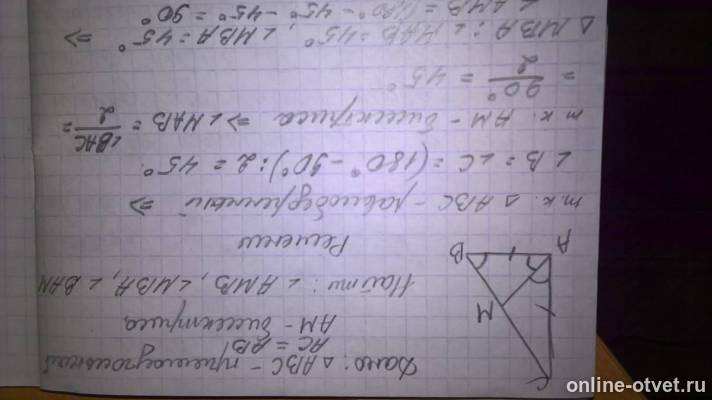 Дано: △ABC - прямоугольный
AC = AB
AM - биссектриса
Найти: ∠AMB, ∠MBA, ∠BAM
C
M
A
B
Решение
т.к. △ABC - равнобедренный ⇒
∠B = ∠C = (180° - 90°) : 2 = 45°.
т.к. AM - биссектриса ⇒ ∠MAB = ∠BAC/2 =
= 90°/2 = 45°
△MBA: ∠MAB = 45°, ∠MBA = 45° ⇒
∠AMB = 180° - 45° - 45° = 90°
online-otvet.ru